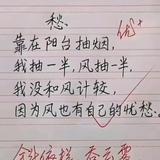 愁
优+
靠在阳台抽烟,
我抽一半,风抽一半,
我没和风计较,
因为风也有自己的忧愁。